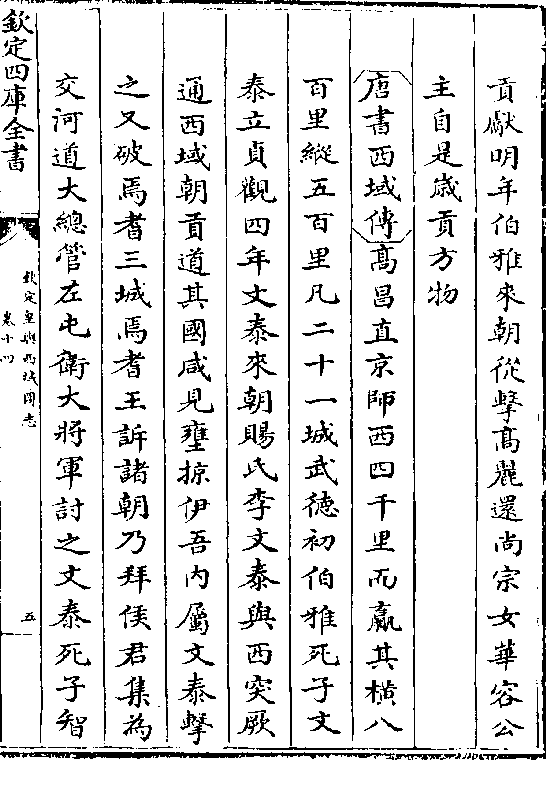 貢獻明年伯雅來朝從擊髙麗還尚宗女華容公
主自是歲貢方物
唐書西域傳髙昌直京師西四千里而贏其横八
百里縱五百里凡二十一城武徳初伯雅死子文
泰立貞觀四年文泰來朝賜氏李文泰與西突厥
通西域朝貢道其國咸見壅掠伊吾内屬文泰擊
之又破焉耆三城焉耆王訴諸朝乃拜侯君集為
交河道大總管左屯衛大將軍討之文泰死子智
欽定四庫全書
欽定皇輿西域圖志
卷十四
五